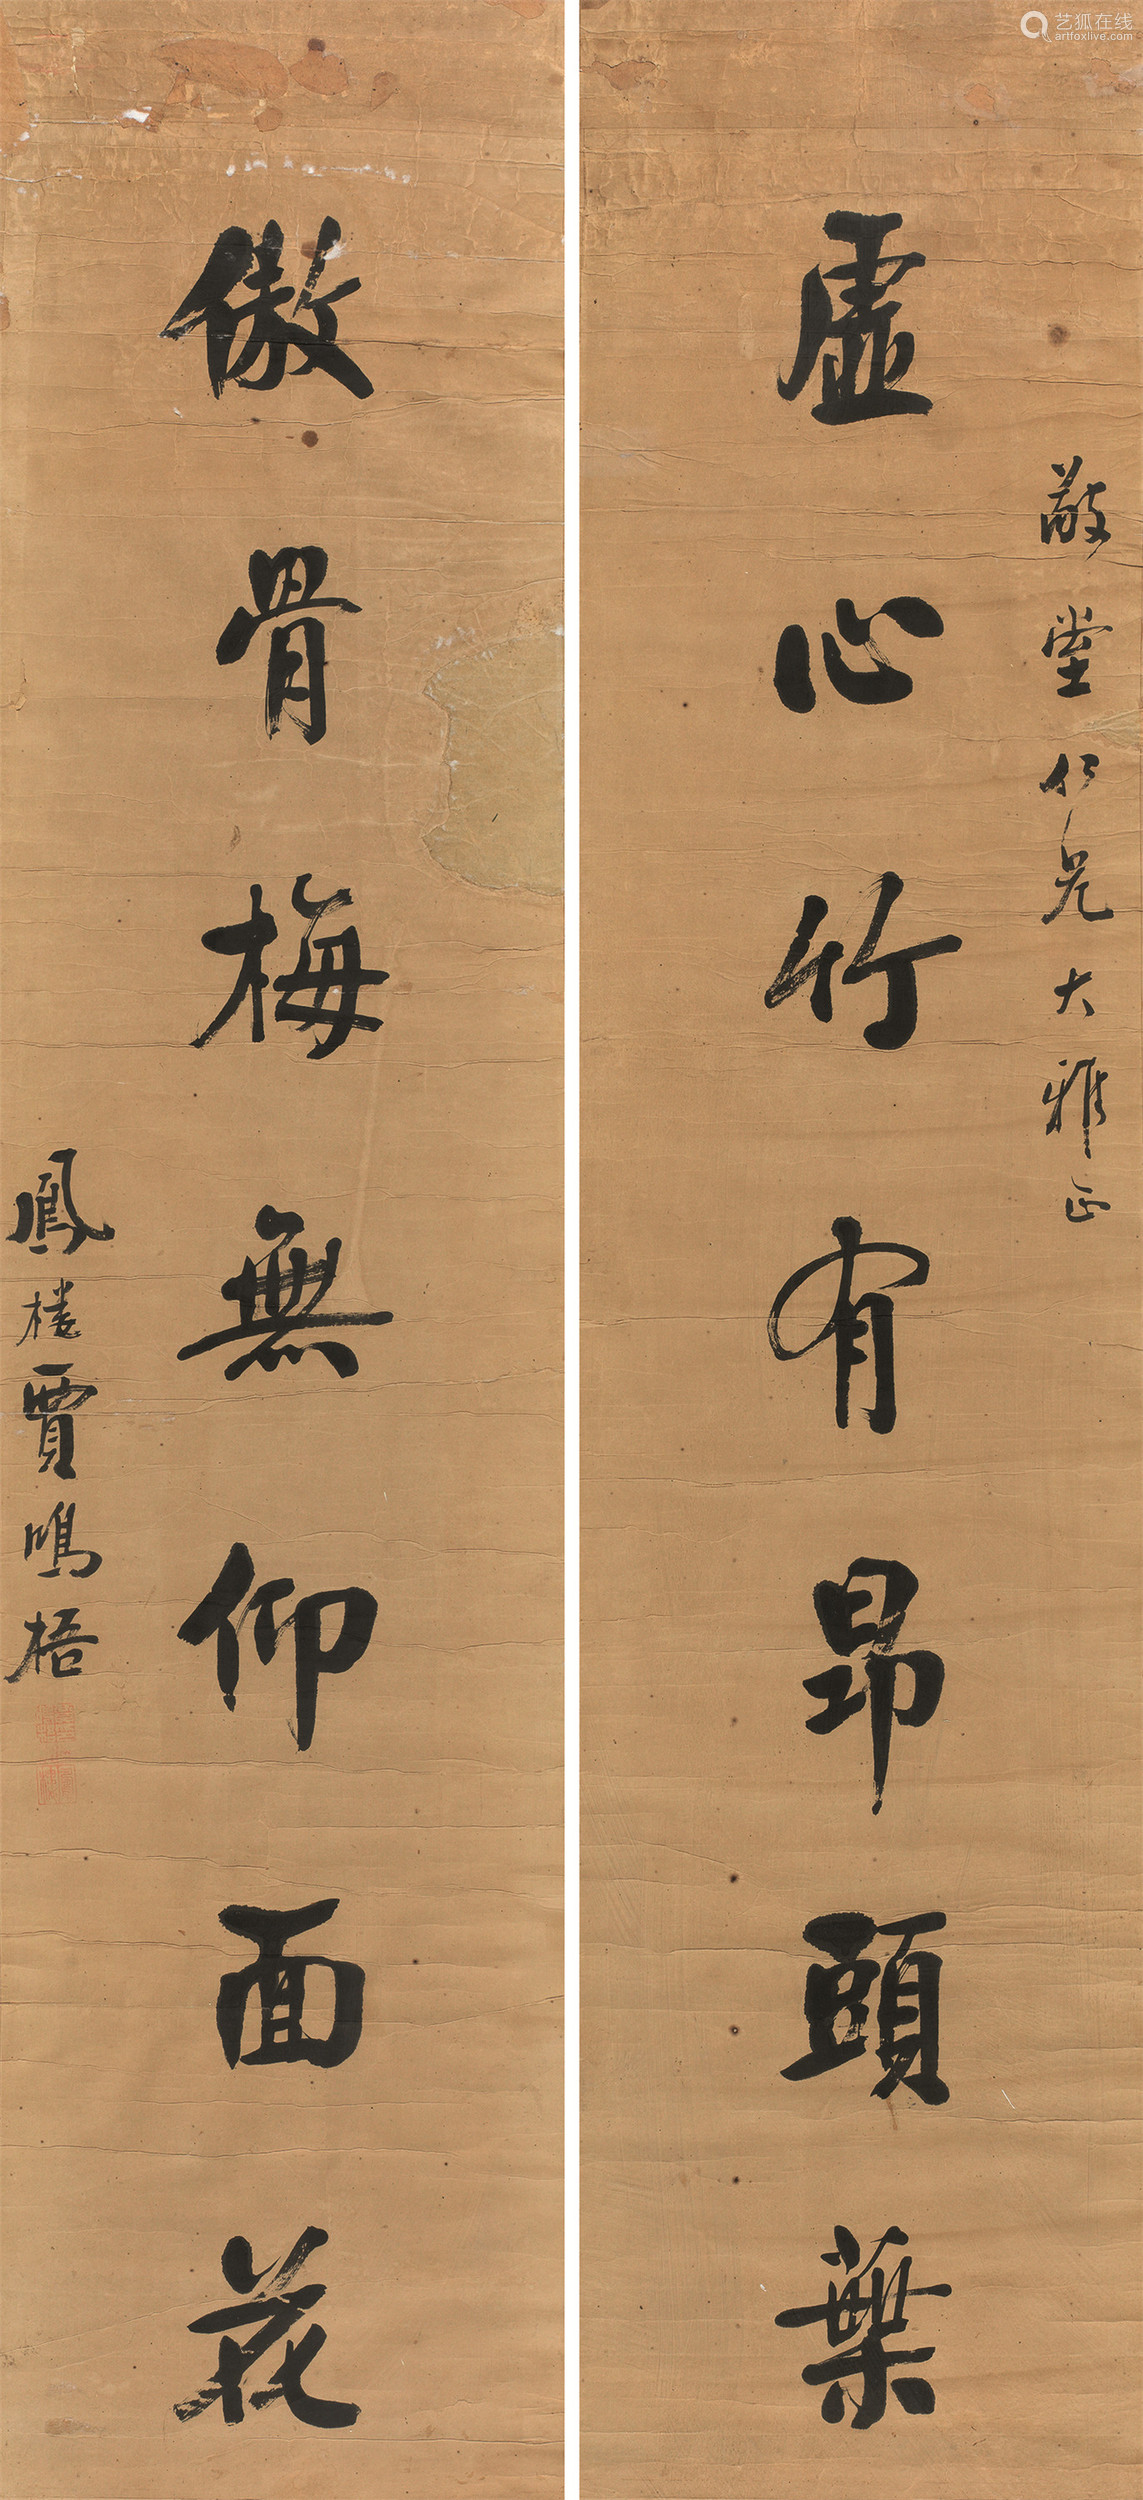 艺狐在线
artfoxlive.com
敬堂仁兄大雅正
虛心竹有昂頭葉
傲骨梅無仰面花
鳳樓賈鳴梧